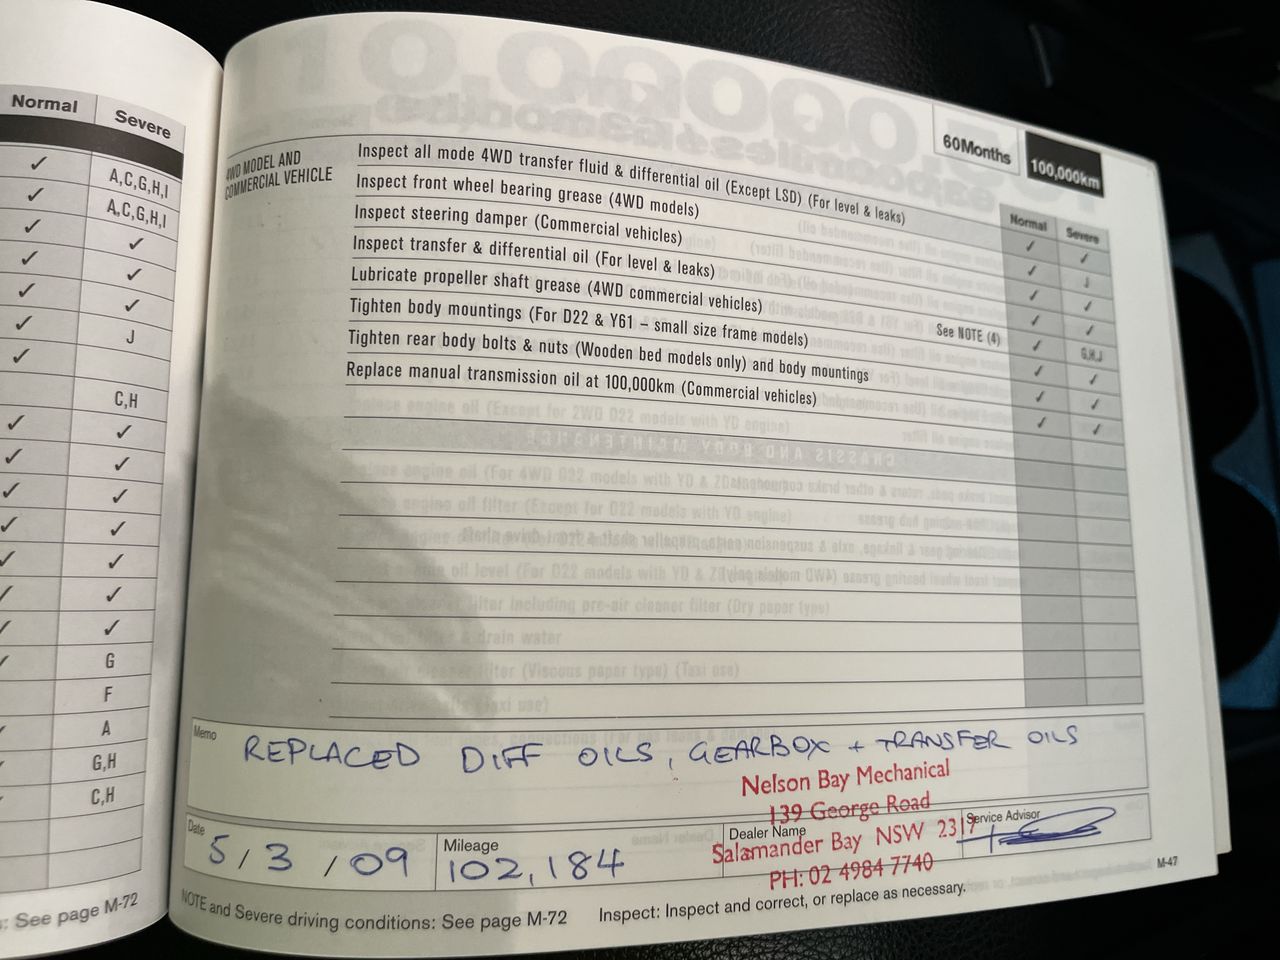 Normal Severe
✓ A,C,G,H,I
✓ A,C,G,H,I
✓ ✓
✓ ✓
✓ ✓
✓ J
✓
C,H
✓ ✓
✓ ✓
✓ ✓
✓ ✓
✓ ✓
✓ ✓
✓ ✓
✓ G
F
A
G,H
C,H
: See page M-72
60Months 100,000km
Normal Severe
4WD MODEL AND
COMMERCIAL VEHICLE
Inspect all mode 4WD transfer fluid & differential oil (Except LSD) (For level & leaks) ✓ ✓
Inspect front wheel bearing grease (4WD models) ✓ J
Inspect steering damper (Commercial vehicles) ✓ ✓
Inspect transfer & differential oil (For level & leaks) ✓ ✓
Lubricate propeller shaft grease (4WD commercial vehicles) See NOTE (4) ✓ G,H,J
Tighten body mountings (For D22 & Y61 – small size frame models) ✓ ✓
Tighten rear body bolts & nuts (Wooden bed models only) and body mountings ✓ ✓
Replace manual transmission oil at 100,000km (Commercial vehicles) ✓ ✓
Memo
REPLACED DIFF OILS, GEARBOX + TRANSFER OILS
Nelson Bay Mechanical
139 George Road
Salamander Bay NSW 2317
PH: 02 4984 7740
Date
5/3/09
Mileage
102,184
Dealer Name
Service Advisor
M-47
NOTE and Severe driving conditions: See page M-72 Inspect: Inspect and correct, or replace as necessary.